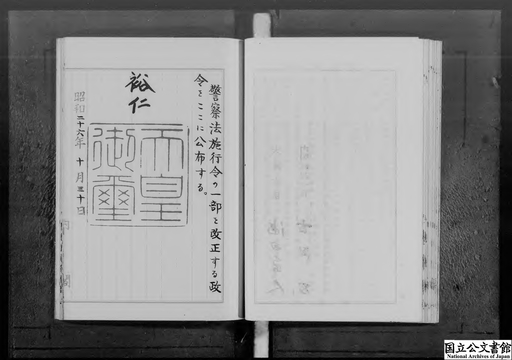 警察法施行令の一部を改正する政
令をここに公布する。
裕仁
天皇
御璽
昭和二十六年十月三十日
内閣
国立公文書館
National Archives of Japan